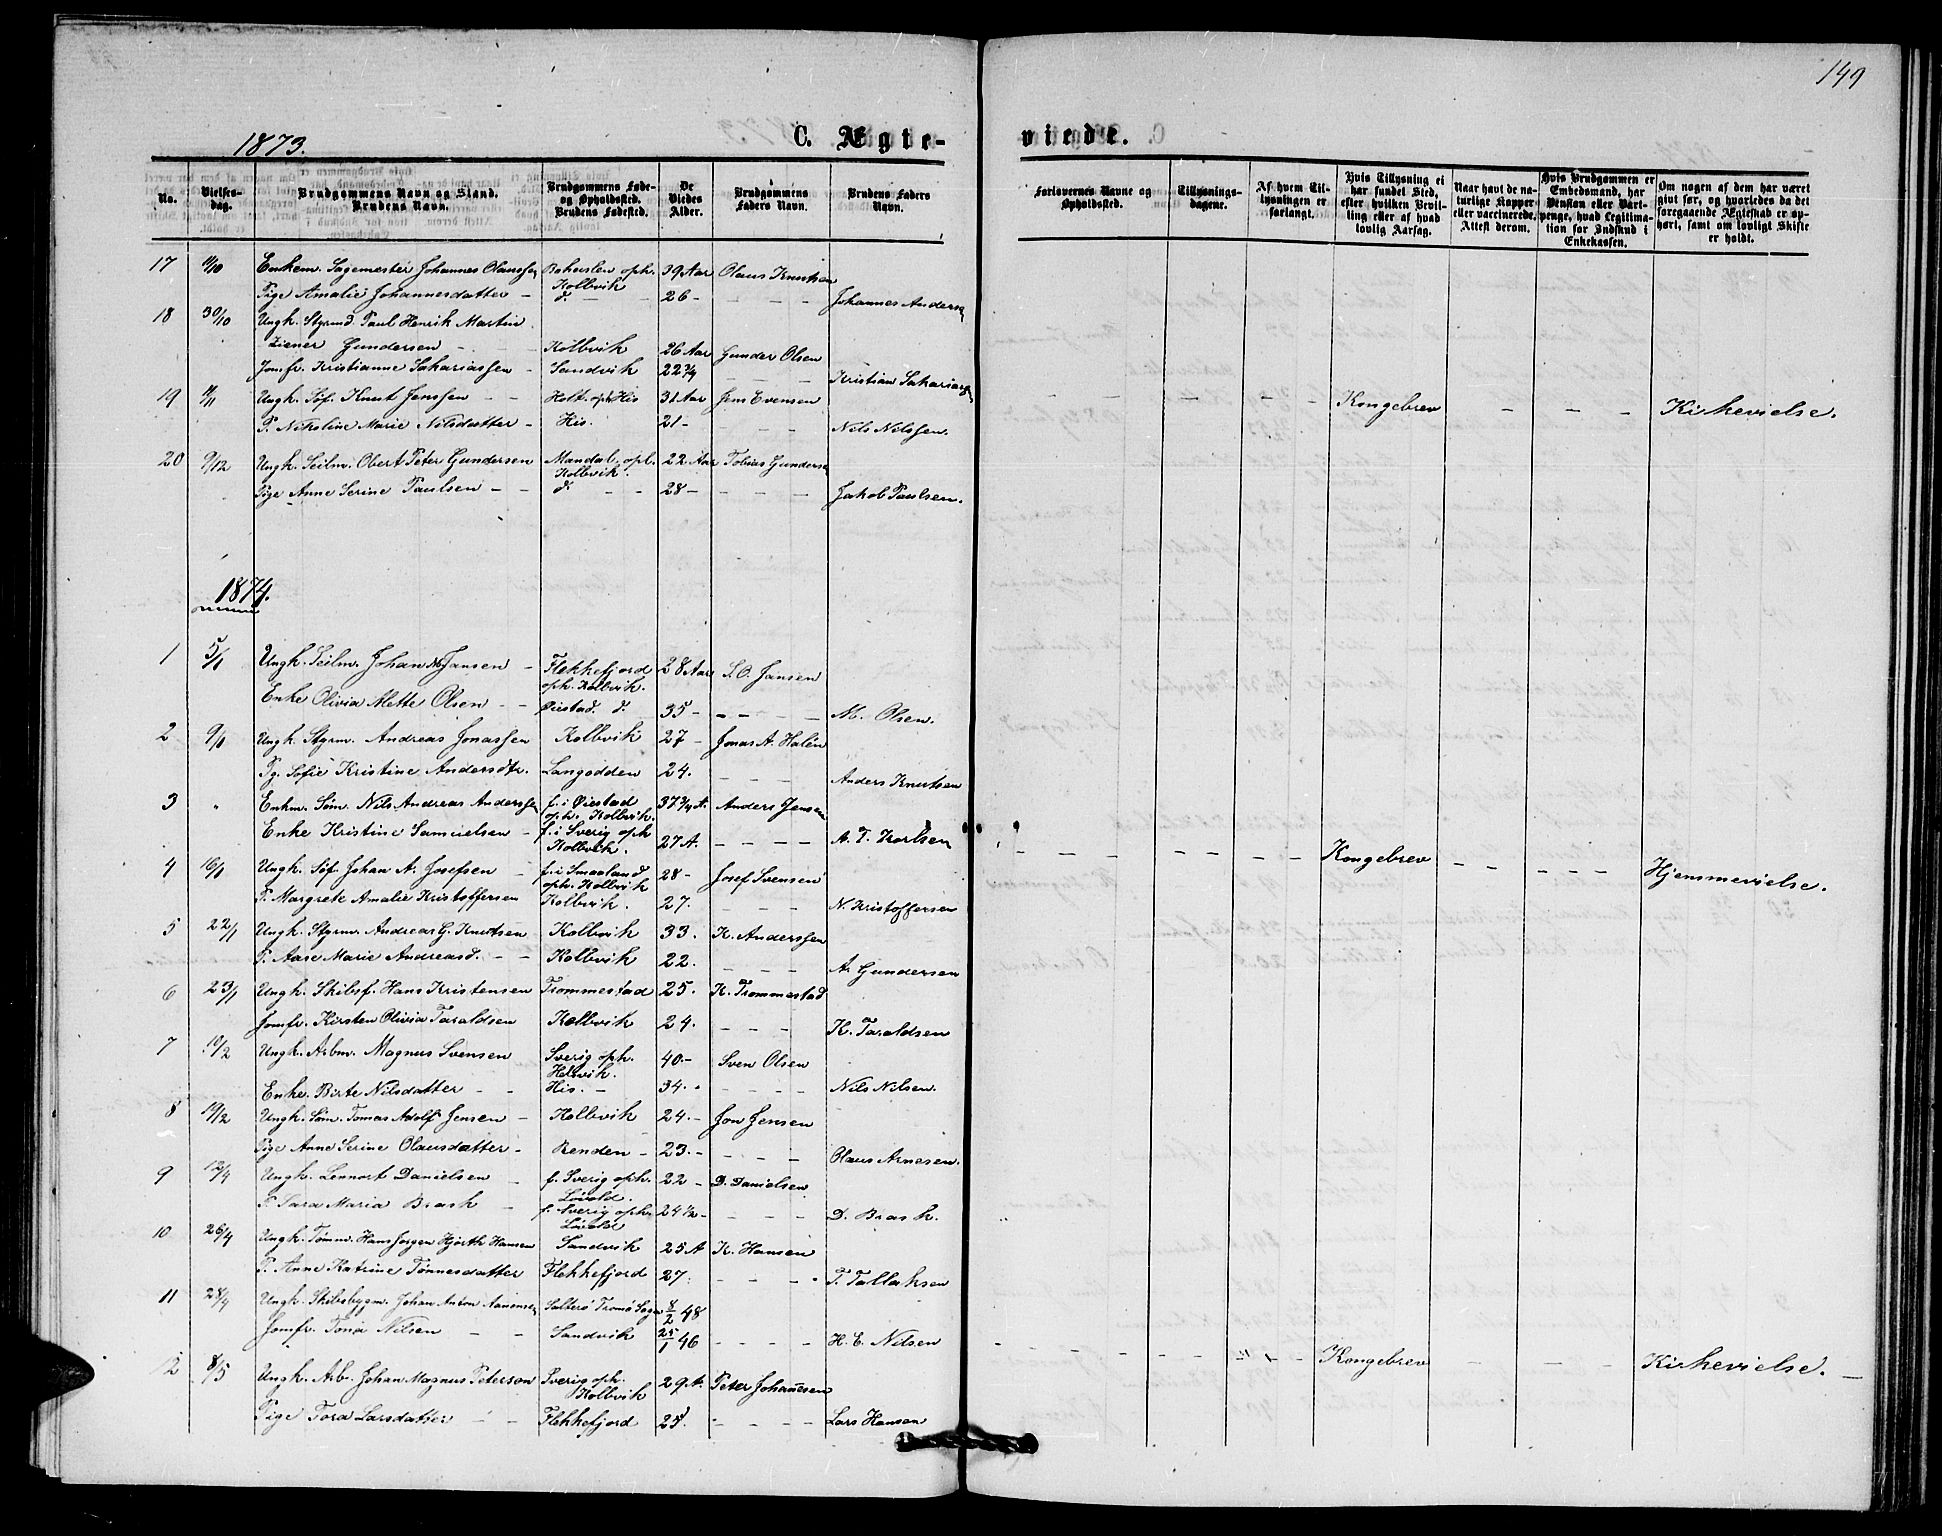 149
1873.
C. Ægte-
viede.
No.
Vielses-dag.
Brudgommens Navn og Stand.
Brudens Navn.
Brudgommens Føde- og Opholdssted.
Brudens Fødested.
De Viedes Alder.
Brudgommens Faders Navn.
Brudens Faders Navn.
Forlovernes Navne og Opholdssted.
Tillysnings-dagene.
Af hvem Til-lysningen er forlangt.
Hvis Tillysning ei har fundet Sted, efter hvilken Bevil-ling eller af hvad lovlig Aarsag.
Naar havt de na-turlige Kopper eller vaccinerede. Attest derom.
Hvis Brudgommen er Embedsmand, har Pension eller Vart-penge, hvad Legitima-tion for Indskud i Enkekassen.
Om nogen af dem har været gift før, og hvorledes da det foregaaende Ægteskab er op-hørt, samt om lovligt Skifte er holdt.
17 11/10 Enkem. Sagemester Johannes Olaussen Bohuslen oph. Kolbvik 39 Aar Olaus Knutsen
Pige Amalie Johannesdatter – d – – 26 – – – – Johannes Andersen
18 30/10 Ungk. Styrmd. Paul Henrik Martin
Ziener Gundersen – Kolbvik 26 Aar Gunder Olsen
Jomfr. Kristianne Sakariassen – Sandvik 22 3/4 – – – Kristian Sakariassen
19 9/11 Ungk. Søf. Knut Jenssen – – Holt. oph His 31 Aar Jens Evensen – – – – Kongebrev – – – Kirkevielse.
P. Nikoline Marie Nilsdatter – His. 21 – – – – Nils Nilssen.
20 9/12 Ungk. Seilm. Obert Peter Gundersen Mandal. oph. Kolbvik. 22 Aar Tobias Gundersen
Pige Anne Serine Paulsen – – d. – – 28 – – – – Jakob Paulsen.
1874.
1 5/1 Ungk. Seilm. Johan M. Jansen – Flekkefjord oph. Kolbvik. 28 Aar S. O. Jansen
Enke Olivia Mette Olsen – – Øiestad. d. 35 – – – – M. Olsen.
2 9/1 Ungk. Styrm. Andreas Jonassen Kolbvik 27 – Jonas A. Halén
Pg. Sofie Kristine Andersdtr. Langodden 24. – – – Anders Knutsen
3 " Enkm. Søm. Nils Andreas Anderssen f. i Øiestad oph. Kolbvik. 37 3/4 A. Anders Jensen
Enke Kristine Samuelsen – f. i Sverig oph Kolbvik. 27 A. – – – – A. T. Karlsen
4 16/1 Ungk. Søf. Johan A. Josefsen – f. i Smaaland oph. Kolbvik 28 – Josef Svensen – – – – – – – Kongebrev – – – – – Hjemmevielse.
P. Margrete Amalie Kristoffersen Kolbvik. 27. – – – N. Kristoffersen
5 22/1 Ungk. Styrm. Andreas G. Knutsen – Kolbvik 33. K. Anderssen
P. Aase Marie Andreasd. – – Kolbvik 22. – – – A. Gundersen
6 23/1 Ungk. Skibsf. Hans Kristensen Trommestad 25. K. Trommestad
Jomfr. Kirsten Olivia Taraldsen Kolbvik 24. – – – K. Taraldsen
7 10/2 Ungk. Arbm. Magnus Svensen Sverig oph. 40 – Sven Olsen
Enke. Birte Nilsdatter – – His. – 34. – Nils Nilsen.
8 19/2 Ungk. Søm. Tomas Adolf Jensen – Kolbvik 24. – Jon Jensen
Pige Anne Serine Olausdatter – Renden – 23. – – – – Olaus Arnesen.
9 12/4 Ungk. Lennart Danielsen – f. Sverig oph. 22 – D. Danielsen
P. Sara Maria Brask – f. Sverig oph. 24 1/2 – – – – D. Brask.
10 26/4 Ungk. Tømm. Hans Jørgen Hjorth Hansen Sandvik 25 A K. Hansen
P. Anne Katrine Tønnesdatter Flekkefjord 27. – – – T. Tallaksen
11 28/4 Ungk. Skibsbygm. Johan Anton Aanensen Salterø Tromø Sogn 8/2 48
Jomfr. Tonia Nilsen – – Sandvik 25/1 46 – – – – H. E. Nilsen – – – – – – – – – Kongebrev – – – Kirkevielse. –
12 8/5 Ungk. Arb. Johan Magnus Peterson Sverig oph. Kolbvik 29 A. Peter Johannesen
Pige Tora Larsdatter – – Flekkefjord 25. – – – Lars Hansen